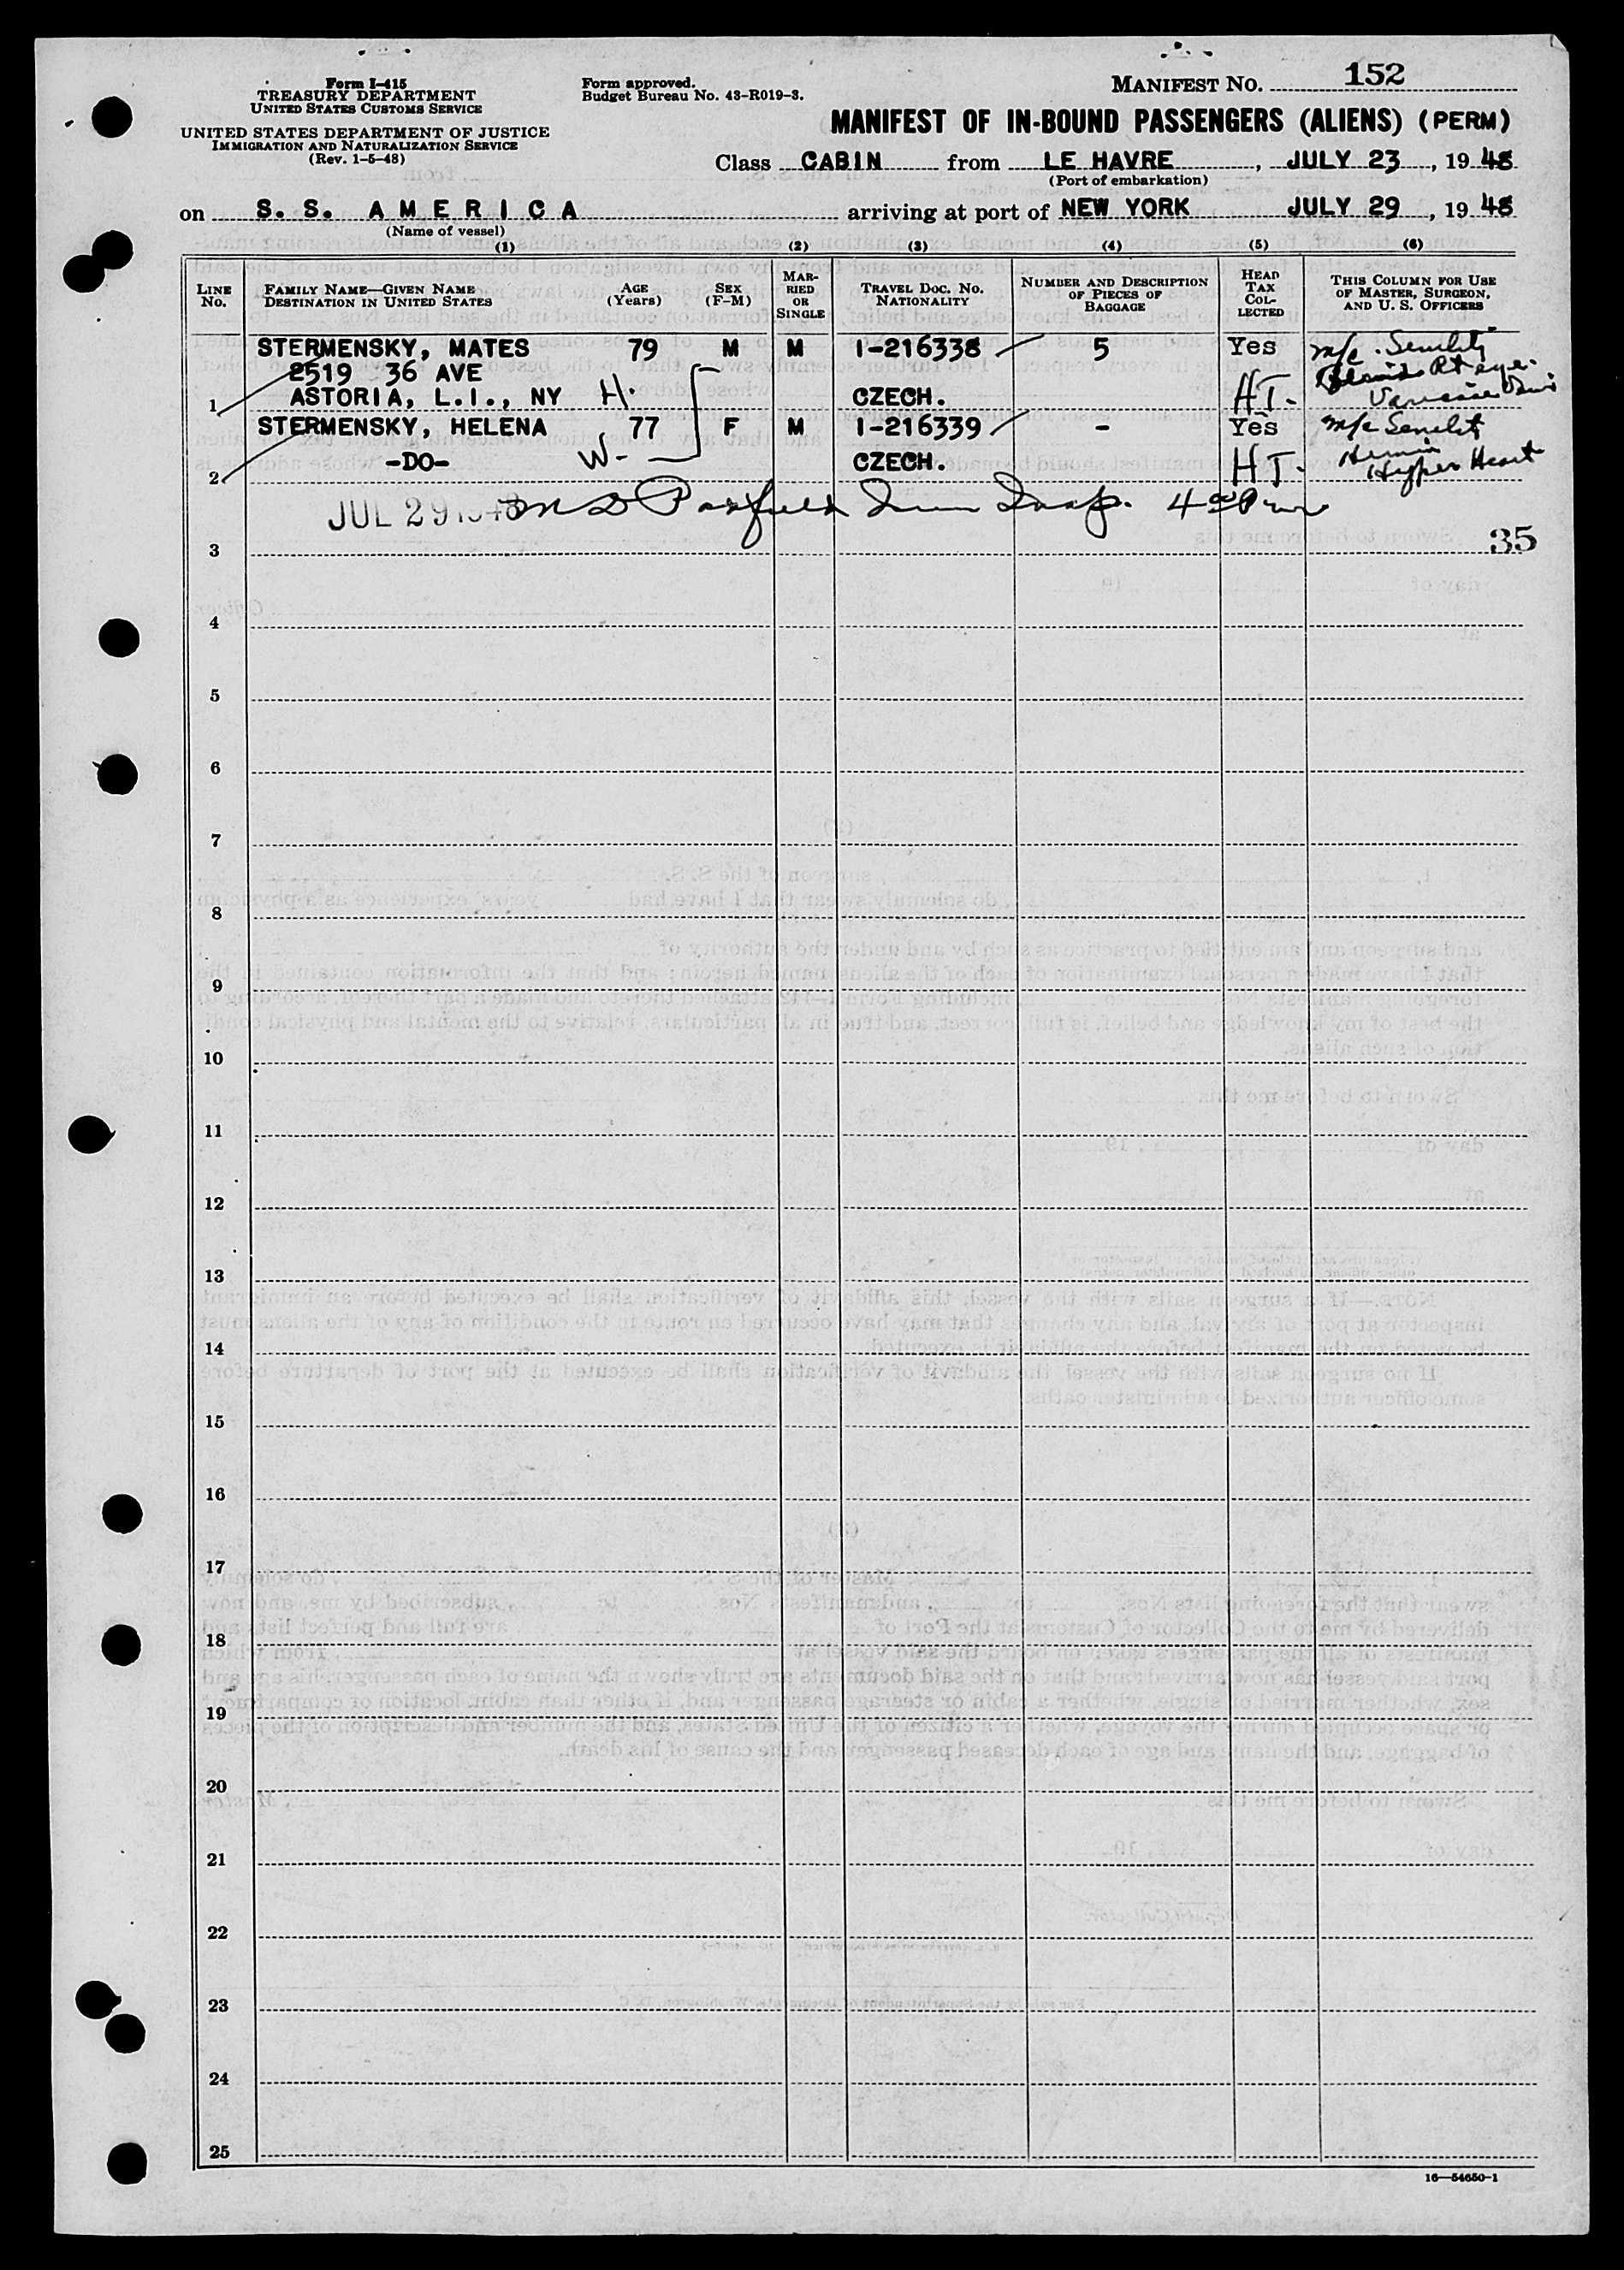 Form I-415
TREASURY DEPARTMENT
UNITED STATES CUSTOMS SERVICE
UNITED STATES DEPARTMENT OF JUSTICE
IMMIGRATION AND NATURALIZATION SERVICE
(Rev. 1-5-48)
Form approved.
Budget Bureau No. 43-R019-3.
MANIFEST NO. 152
MANIFEST OF IN-BOUND PASSENGERS (ALIENS) (PERM)
Class CABIN from LE HAVRE, JULY 23, 1948
(Port of embarkation)
on S. S. AMERICA arriving at port of NEW YORK JULY 29, 1948
(Name of vessel)
(1) (2) (3) (4) (5) (6)
LINE No.
FAMILY NAME—GIVEN NAME
DESTINATION IN UNITED STATES
AGE (Years)
SEX (F-M)
MARRIED OR SINGLE
TRAVEL DOC. NO.
NATIONALITY
NUMBER AND DESCRIPTION OF PIECES OF BAGGAGE
HEAD TAX COLLECTED
THIS COLUMN FOR USE OF MASTER, SURGEON, AND U. S. OFFICERS
STERMENSKY, MATES 79 M M I-216338 5 Yes m/c. Senility
2519 36 AVE
Rt eye.
1 ASTORIA, L.I., NY H. CZECH. HT.
STERMENSKY, HELENA 77 F M I-216339 - Yes m/c Senility
2 -DO- W- CZECH. HT. Hernia
Hyper Heart
JUL 29 1948
Imm Insp. 4
3 35
4
5
6
7
8
9
10
11
12
13
14
15
16
17
18
19
20
21
22
23
24
25
16—54650-1